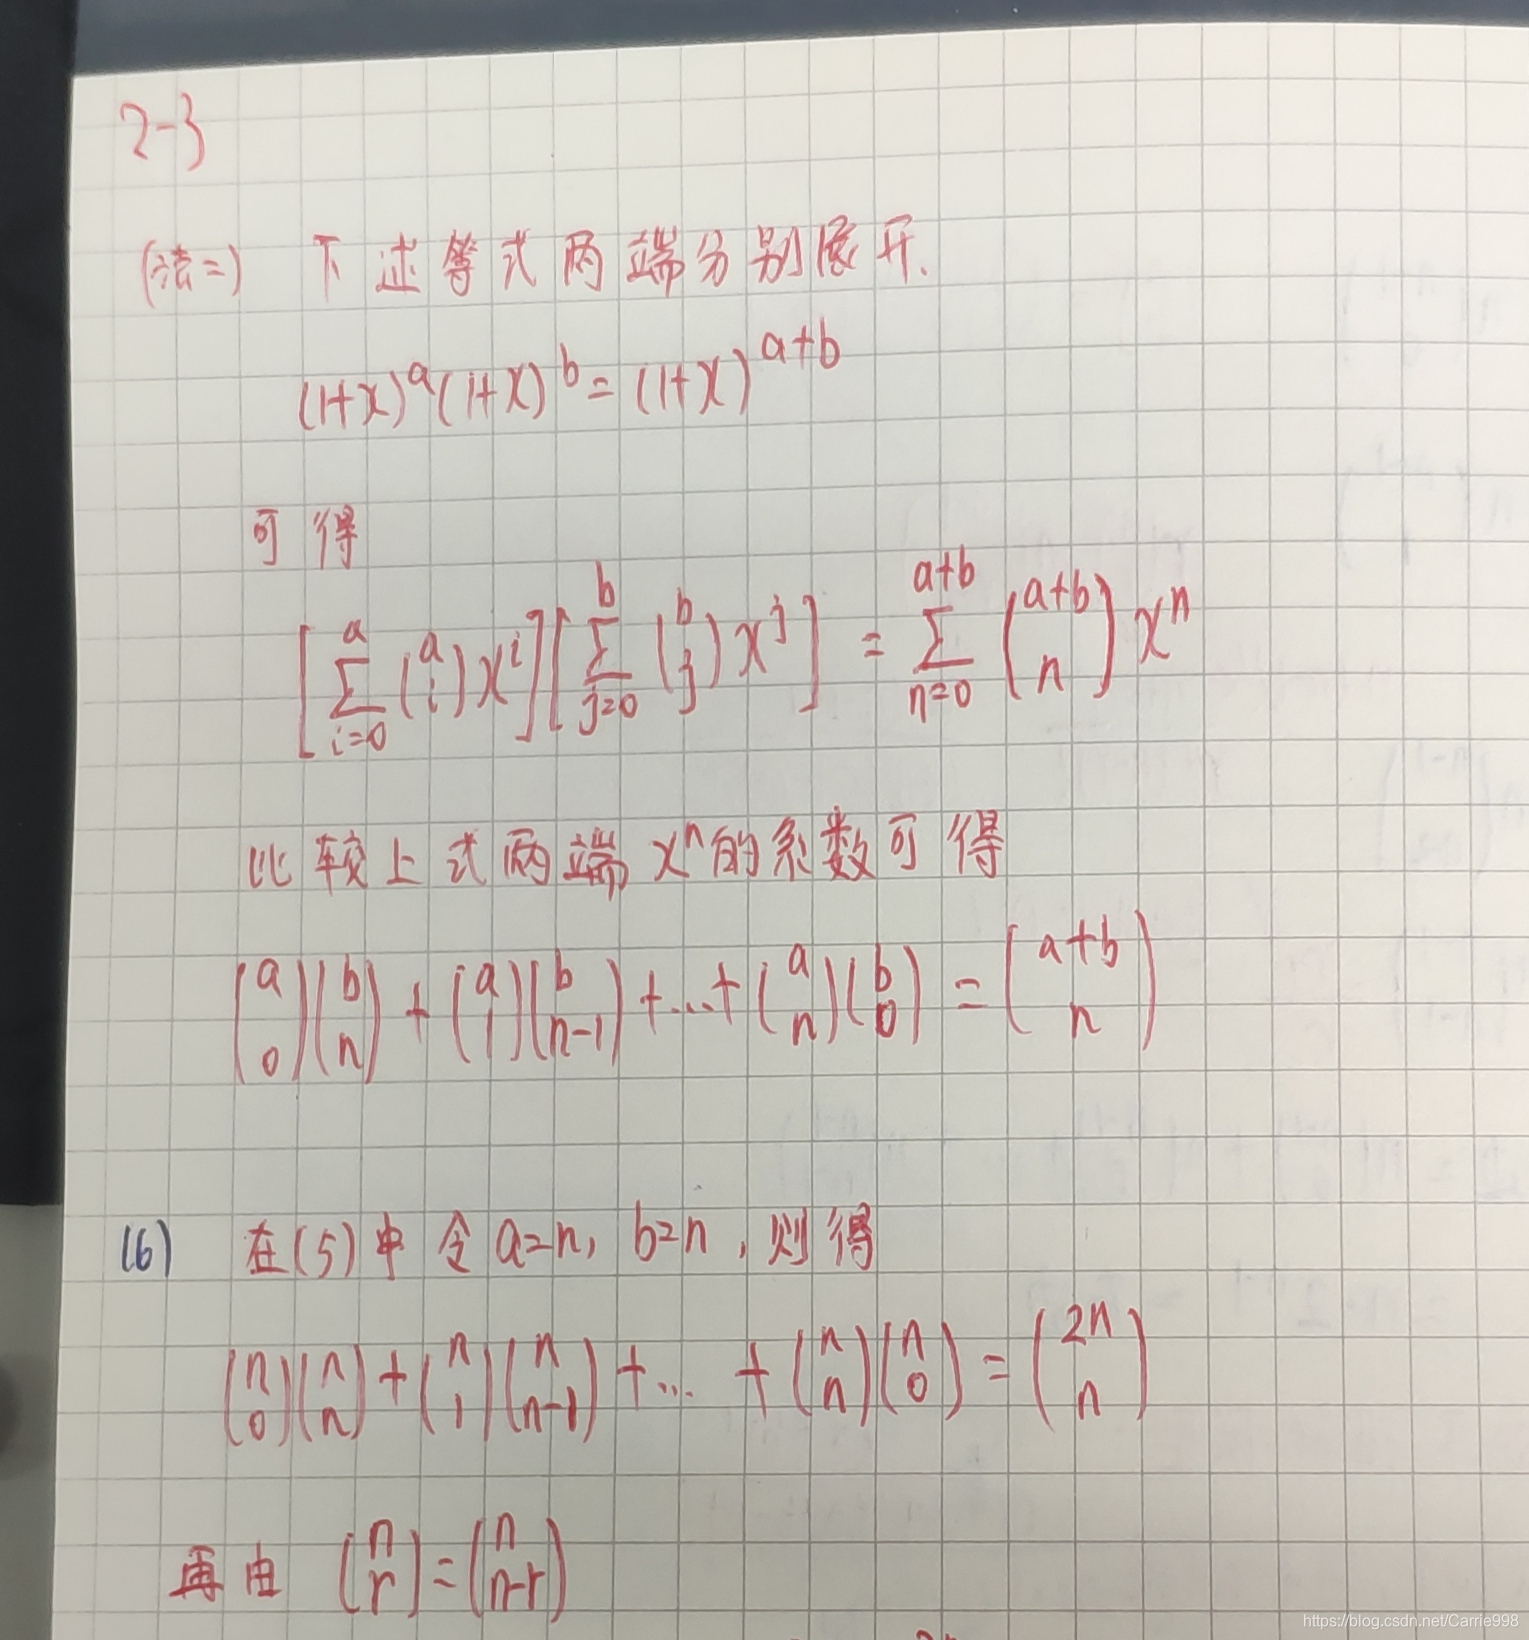 2-3
(法二) 下述等式两端分别展开.
(1+x)^a(1+x)^b=(1+x)^{a+b}
可得
[∑_{i=0}^{a}\binom{a}{i}x^i][∑_{j=0}^{b}\binom{b}{j}x^j] = ∑_{n=0}^{a+b}\binom{a+b}{n}x^n
比较上式两端x^n的系数可得
\binom{a}{0}\binom{b}{n}+\binom{a}{1}\binom{b}{n-1}+...+\binom{a}{n}\binom{b}{0}=\binom{a+b}{n}
(6) 在(5)中令a=n, b=n,则得
\binom{n}{0}\binom{n}{n}+\binom{n}{1}\binom{n}{n-1}+... +\binom{n}{n}\binom{n}{0}=\binom{2n}{n}
再由 \binom{n}{r}=\binom{n}{n-r}
https://blog.csdn.net/Carrie998